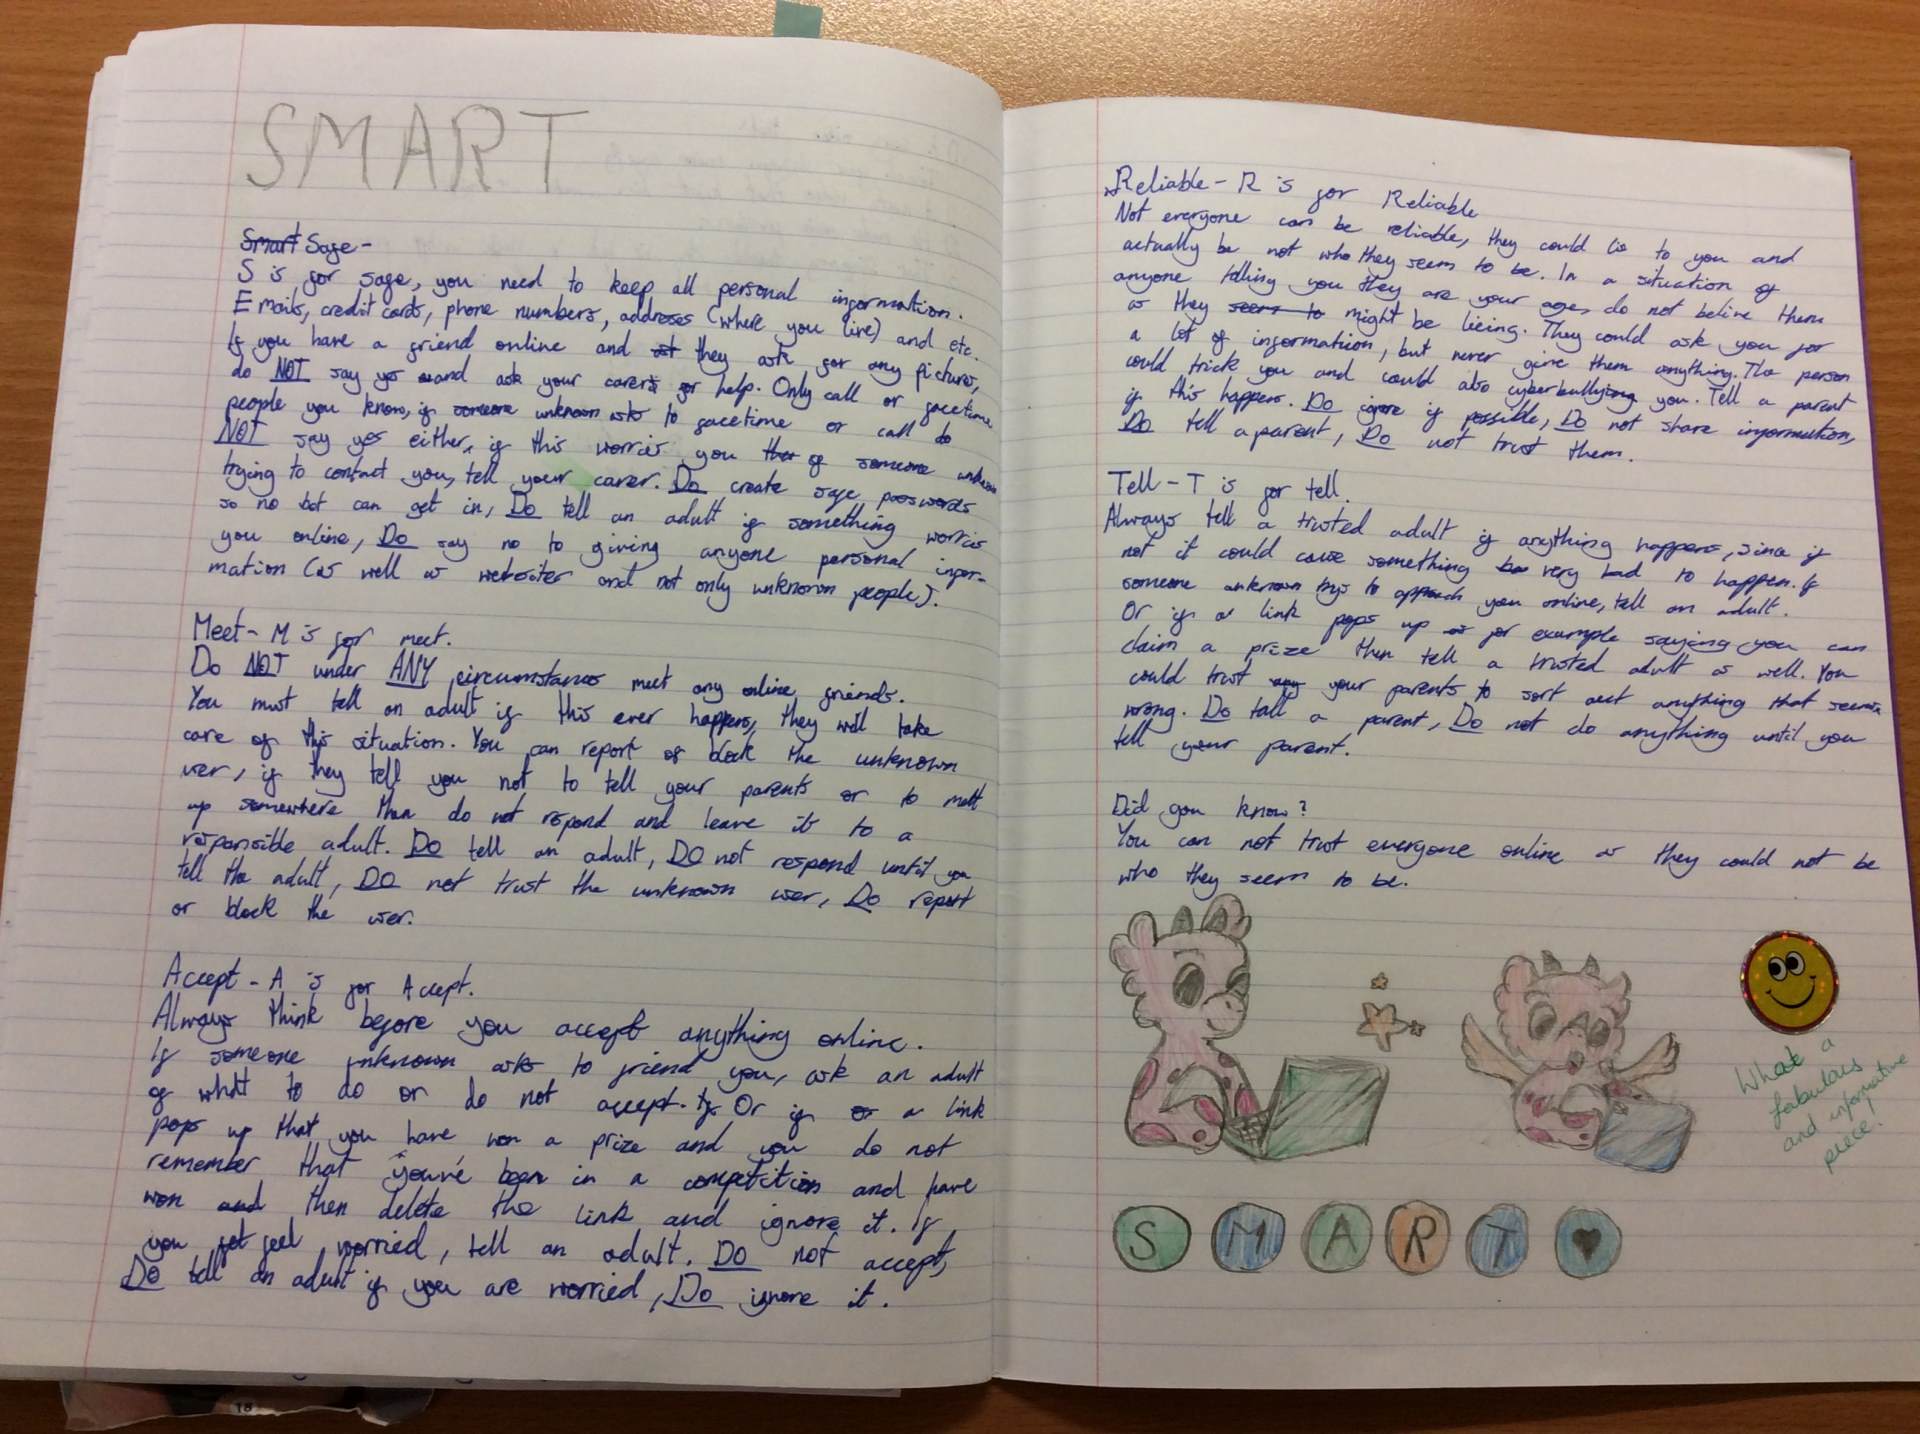 SMART
Smart Safe-
S is for safe, you need to keep all personal information.
Emails, credit cards, phone numbers, addresses (where you live) and etc.
If you have a friend online and they ask for any pictures,
do NOT say yes and ask your carer for help. Only call or facetime
people you know, if someone unknown asks to facetime or call do
NOT say yes either, if this worries you of someone unknown
trying to contact you, tell your carer. Do create safe passwords
so no bot can get in, Do tell an adult if something worries
you online, Do say no to giving anyone personal infor-
mation (as well as websites and not only unknown people).
Meet- M is for meet.
Do NOT under ANY circumstances meet any online friends.
You must tell an adult if this ever happens, they will take
care of this situation. You can report or block the unknown
user, if they tell you not to tell your parents or to mett
up somewhere then do not respond and leave it to a
responsible adult. Do tell an adult, DO not respond until you
tell the adult, DO not trust the unknown user, Do report
or block the user.
Accept - A is for Accept.
Always think before you accept anything online.
If someone unknown asks to friend you, ask an adult
of what to do or do not accept. Or if a link
pops up that you have won a prize and you do not
remember that you've been in a competition and have
won then delete the link and ignore it. If
you feel worried, tell an adult. Do not accept,
Do tell an adult if you are worried, Do ignore it.
Reliable - R is for Reliable
Not everyone can be reliable, they could lie to you and
actually be not who they seem to be. In a situation of
anyone telling you they are your age, do not belive them
as they seem to might be lieing. They could ask you for
a lot of information, but never give them anything. The person
could trick you and could also cyberbullying you. Tell a parent
if this happens. Do ignore if possible, Do not share information,
Do tell a parent, Do not trust them.
Tell - T is for tell.
Always tell a trusted adult if anything happens, since if
not it could cause something very bad to happen. If
someone unknown trys to approach you online, tell an adult.
Or if a link pops up for example saying you can
claim a prize then tell a trusted adult as well. You
could trust your parents to sort out anything that seems
wrong. Do tell a parent, Do not do anything until you
tell your parent.
Did you know?
You can not trust everyone online as they could not be
who they seem to be.
What a
fabulous
and informative
piece!
S M A R T